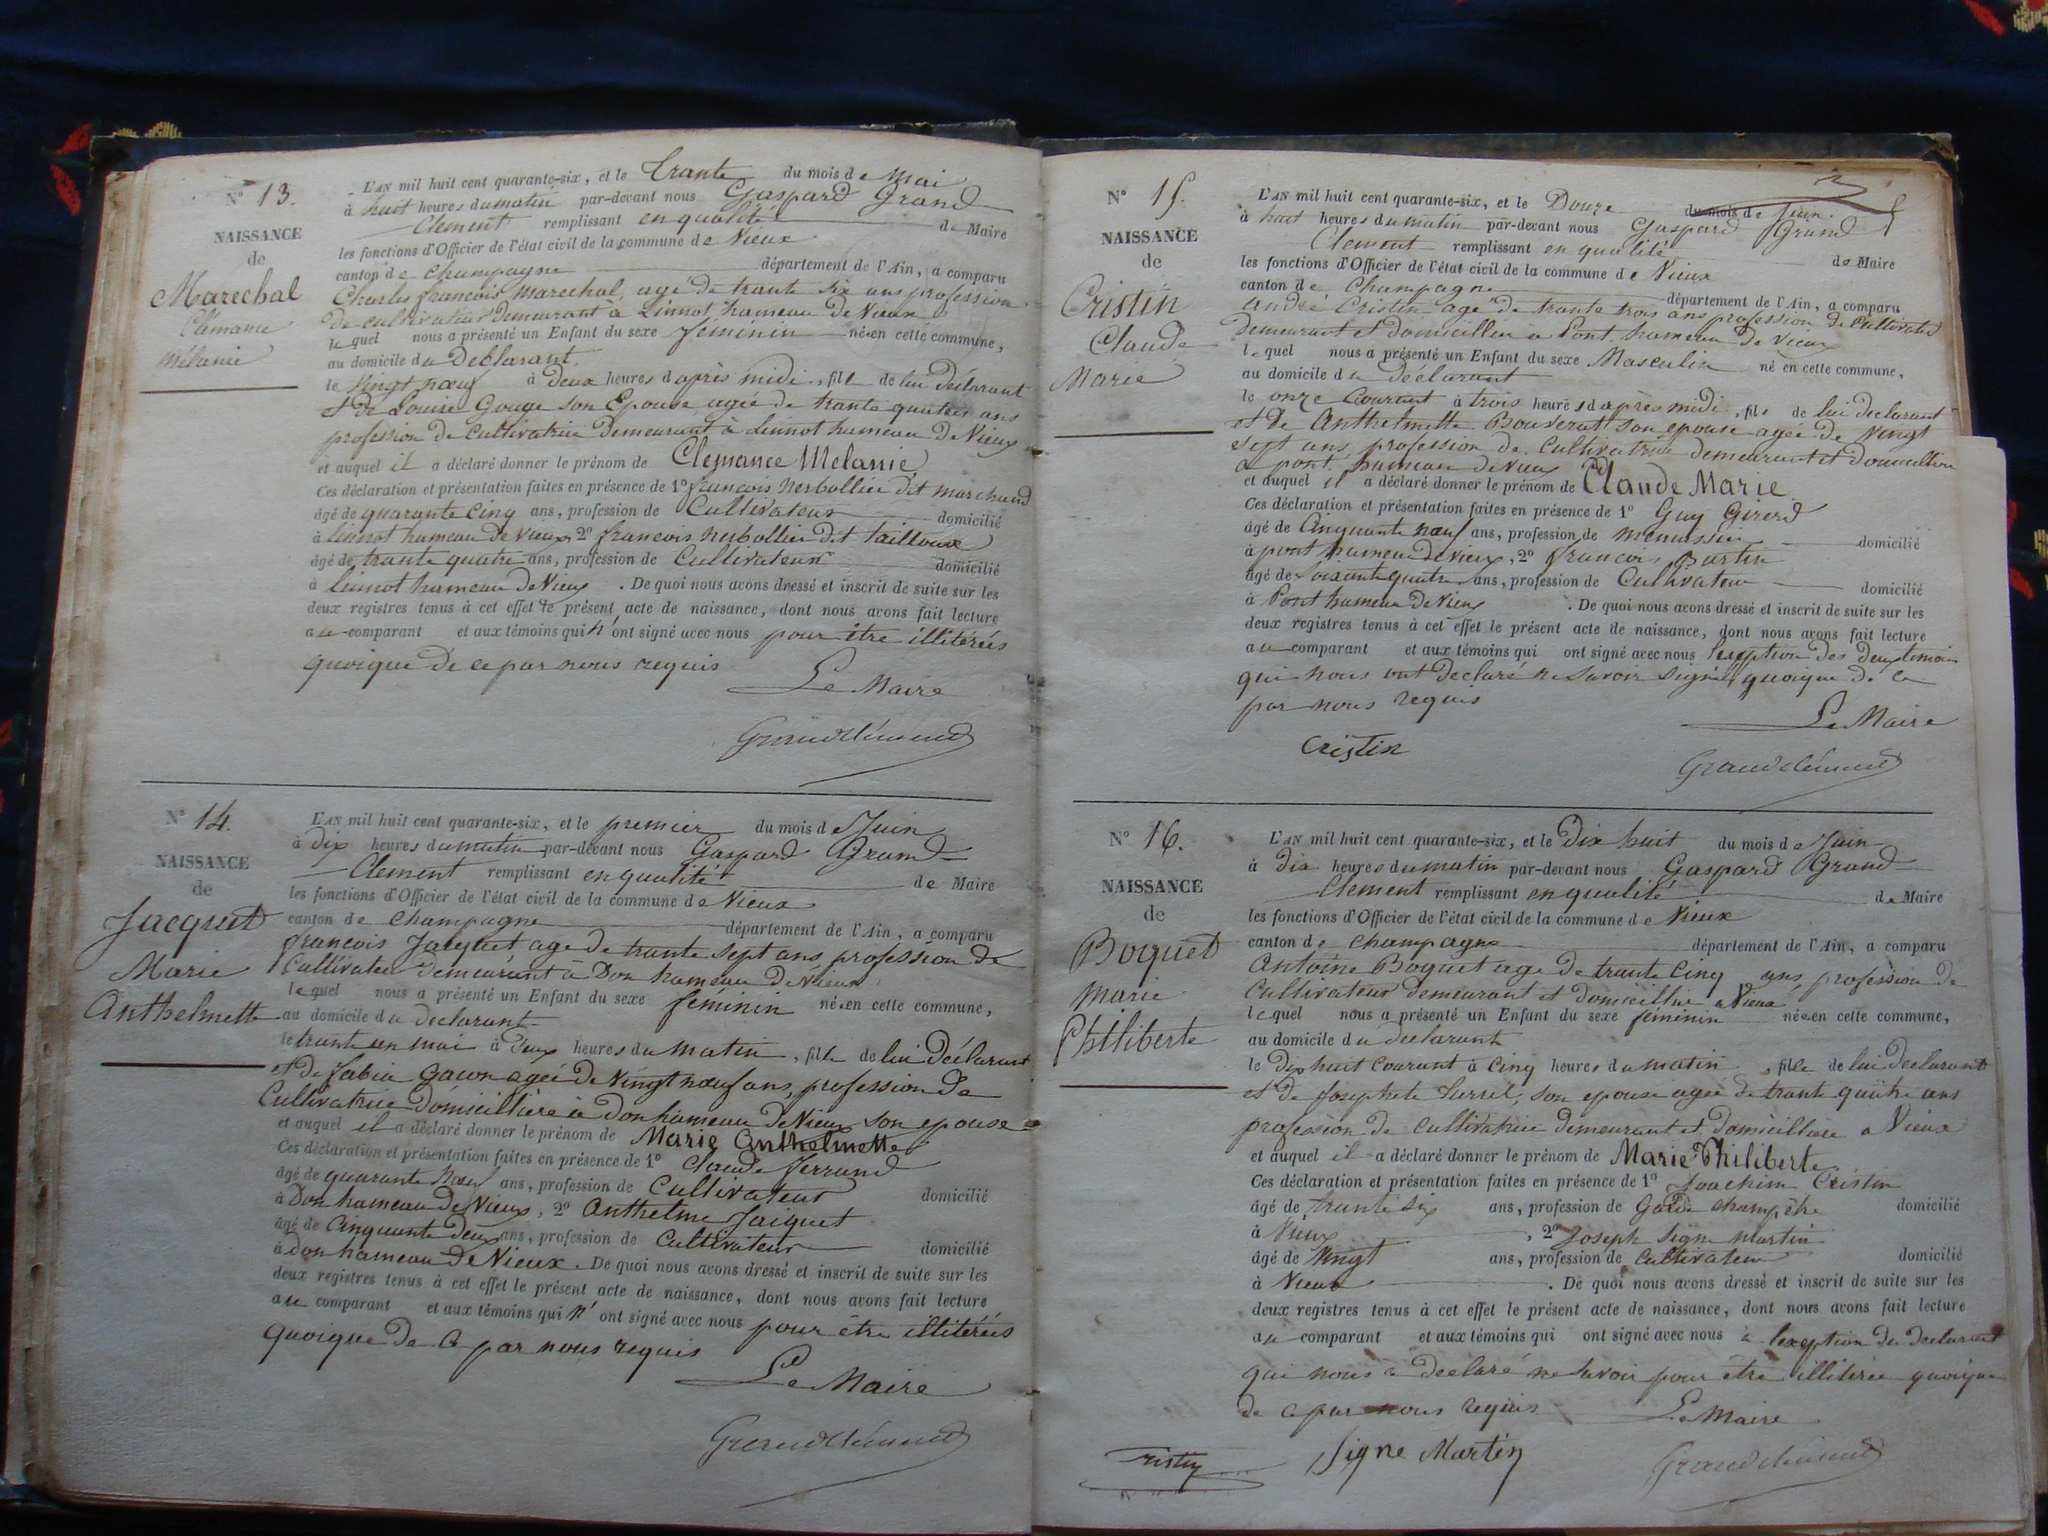 N° 13.
NAISSANCE
de
Marechal
Clémance
Mélanie
L'AN mil huit cent quarante-six, et le trante du mois de Mai
à huit heures du matin par-devant nous Gaspard Grand
Clement remplissant en qualité de Maire
les fonctions d'Officier de l'état civil de la commune de Vieux
canton de Champagne département de l'Ain, a comparu
Charles francois Marechal, agé de trante six ans profession
de cultivateur Demeurant à Linnot hameau de Vieux
lequel nous a présenté un Enfant du sexe feminin née en cette commune,
au domicile du Déclarant
le vingt nœuf à deux heures d'après midi, fille de lui déclarant
et de Louise Gouge son Epouse agée de trante quatre ans
profession de cultivatrice Demeurant à Linnot hameau de Vieux
et auquel il a déclaré donner le prénom de Clemance Melanie
Ces déclaration et présentation faites en présence de 1° francois herbollier dit marchand
âgé de quarante Cinq ans, profession de Cultivateur domicilié
à Linnot hameau de Vieux, 2° francois herbollier dit tailloux
âgé de trante quatre ans, profession de Cultivateur domicilié
à Linnot hameau de Vieux. De quoi nous avons dressé et inscrit de suite sur les
deux registres tenus à cet effet le présent acte de naissance, dont nous avons fait lecture
au comparant et aux témoins qui n'ont signé avec nous pour être illitérés
quoique de ce par nous requis
Le Maire
Grandclément
N° 14.
NAISSANCE
de
Jacquet
Marie
Anthelmette
L'AN mil huit cent quarante-six, et le premier du mois de Juin
à dix heures du matin par-devant nous Gaspard Grand
Clement remplissant en qualité de Maire
les fonctions d'Officier de l'état civil de la commune de Vieux
canton de Champagne département de l'Ain, a comparu
francois Jacquet age de trante sept ans, profession de
Cultivateur demeurant à Don hameau de Vieux
lequel nous a présenté un Enfant du sexe féminin née en cette commune,
au domicile du declarant
le trante un mai à deux heures du matin, fille de lui Déclarant
et de fabia Gacon agée de Vingt nœuf ans, profession de
Cultivatrice domicilliere à don hameau de Vieux son epouse
et auquel il a déclaré donner le prénom de Marie Anthelmette
Ces déclaration et présentation faites en présence de 1° Claude ferrand
âgé de quarante nœuf ans, profession de Cultivateur domicilié
à Don hameau de Vieux, 2° Anthelme Jaiquet
âgé de Cinquante deux ans, profession de Cultivateur domicilié
à don hameau de Vieux. De quoi nous avons dressé et inscrit de suite sur les
deux registres tenus à cet effet le présent acte de naissance, dont nous avons fait lecture
au comparant et aux témoins qui n'ont signé avec nous pour être illitérés
quoique de ce par nous requis
Le Maire
Grandclément
N° 15.
NAISSANCE
de
Cristin
Claude
Marie
L'AN mil huit cent quarante-six, et le Douze du mois de Juin
à huit heures du matin par-devant nous Gaspard Grand
Clement remplissant en qualité de Maire
les fonctions d'Officier de l'état civil de la commune de Vieux
canton de Champagne département de l'Ain, a comparu
andré Cristin age de trante trois ans profession de Cultivateur
demeurant et domicillier à Pont hameau de Vieux
lequel nous a présenté un Enfant du sexe Masculin né en cette commune,
au domicile du Déclarant
le onze Courant à trois heures d'après midi, fils de lui declarant
et de Anthelmette Bouverat son epouse agée de Vingt
sept ans profession de Cultivatrice demeurant et domicilliere
a pont hameau de vieux
et auquel il a déclaré donner le prénom de Claude Marie
Ces déclaration et présentation faites en présence de 1° Guy Girerd
âgé de Cinquante nœuf ans, profession de menuisier domicilié
à pont hameau de vieux, 2° francois Burtin
âgé de Soixante quatre ans, profession de Cultivateur domicilié
à Pont hameau de Vieux. De quoi nous avons dressé et inscrit de suite sur les
deux registres tenus à cet effet le présent acte de naissance, dont nous avons fait lecture
au comparant et aux témoins qui ont signé avec nous l'exeption des deux temoins
qui nous ont declaré ne savoir signer quoique de ce
par nous requis
Le Maire
Cristin
Grandclément
N° 16.
NAISSANCE
de
Boquet
Marie
Philiberte
L'AN mil huit cent quarante-six, et le Dix huit du mois de Juin
à dix heures du matin par-devant nous Gaspard Grand
Clement remplissant en qualité de Maire
les fonctions d'Officier de l'état civil de la commune de Vieux
canton de Champagne département de l'Ain, a comparu
Antoine Boquet age de trante Cinq ans profession de
Cultivateur demeurant et domicillier a Vieux
lequel nous a présenté un Enfant du sexe féminin née en cette commune,
au domicile du declarant
le Dix huit Courant à Cinq heures du matin, fille de lui declarant
et de Josephete son epouse agée de trante quatre ans
profession de Cultivatrice demeurant et domicilliere a Vieux
et auquel il a déclaré donner le prénom de Marie Philiberte
Ces déclaration et présentation faites en présence de 1° Joachim Cristin
âgé de trante six ans, profession de Garde champêtre domicilié
à Vieux, 2° Joseph Signe Martin
âgé de Vingt ans, profession de Cultivateur domicilié
à Vieux. De quoi nous avons dressé et inscrit de suite sur les
deux registres tenus à cet effet le présent acte de naissance, dont nous avons fait lecture
au comparant et aux témoins qui ont signé avec nous à l'exeption du declarant
qui nous à declaré ne savoir pour être illitérée quoique
de ce par nous requis
Le Maire
Signe Martin
Grandclément